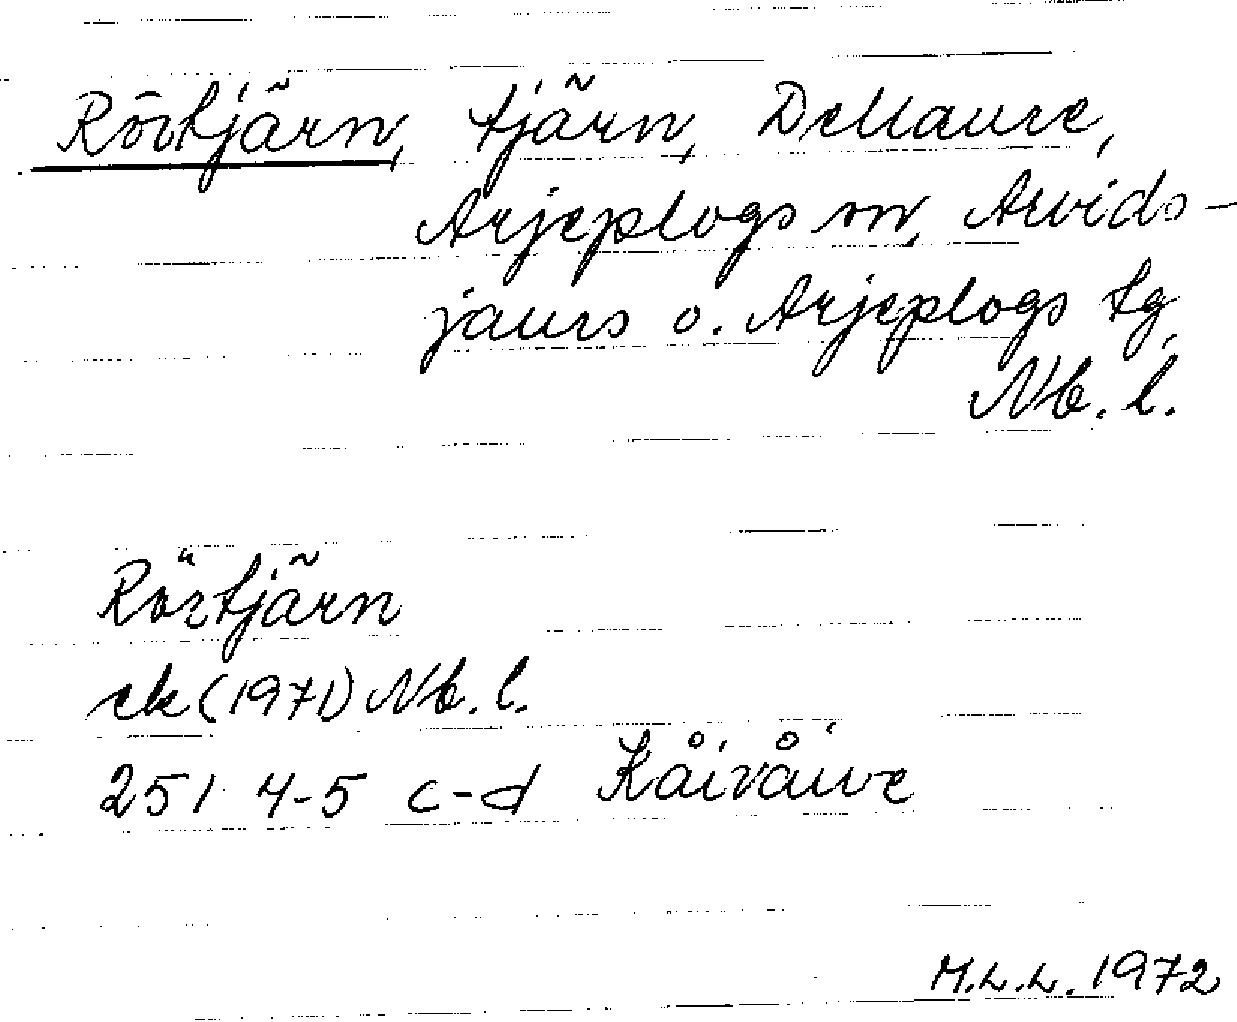 Rörtjärn, tjärn, Dellaure,
Arjeplogs sn, Arvids-
jaurs o. Arjeplogs tg
Nb. l.
Rörtjärn
ek (1971) Nb. l.
251 4-5 c-d Kåivåive
M.L.L. 1972